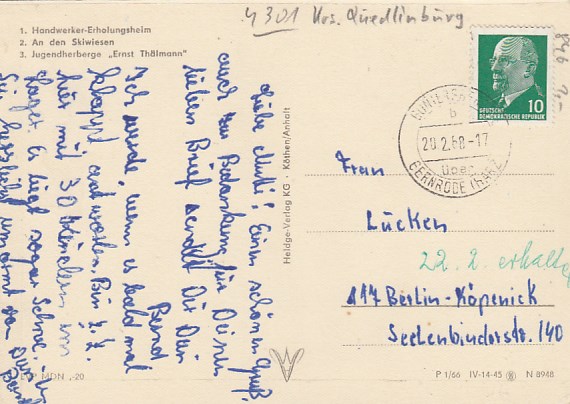 4301 Krs. Quedlinburg
1. Handwerker-Erholungsheim
2. An den Skiwiesen
3. Jugendherberge „Ernst Thälmann"
DEUTSCHE
DEMOKRATISCHE REPUBLIK
10
b
20.2.68-17
über
GERNRODE (HARZ)
Liebe Mutti! Einen schönen Gruß
auch zur Bedankung für Deinen
lieben Brief sendet Dir Dein
Bernd
Ich werde, wenn es bald mal
klappt antworten. Bin z. Z.
hier mit 30 Kindern im
Lager. Es liegt sogar Schnee.
Sei herzlichst umarmt von Dein
Frau
Lücken
22. 2. erhalten
117 Berlin-Köpenick
Seelenbinderstr. 140
Heldge-Verlag KG · Köthen/Anhalt
MDN -,20
P 1/66 IV-14-45 N 8948